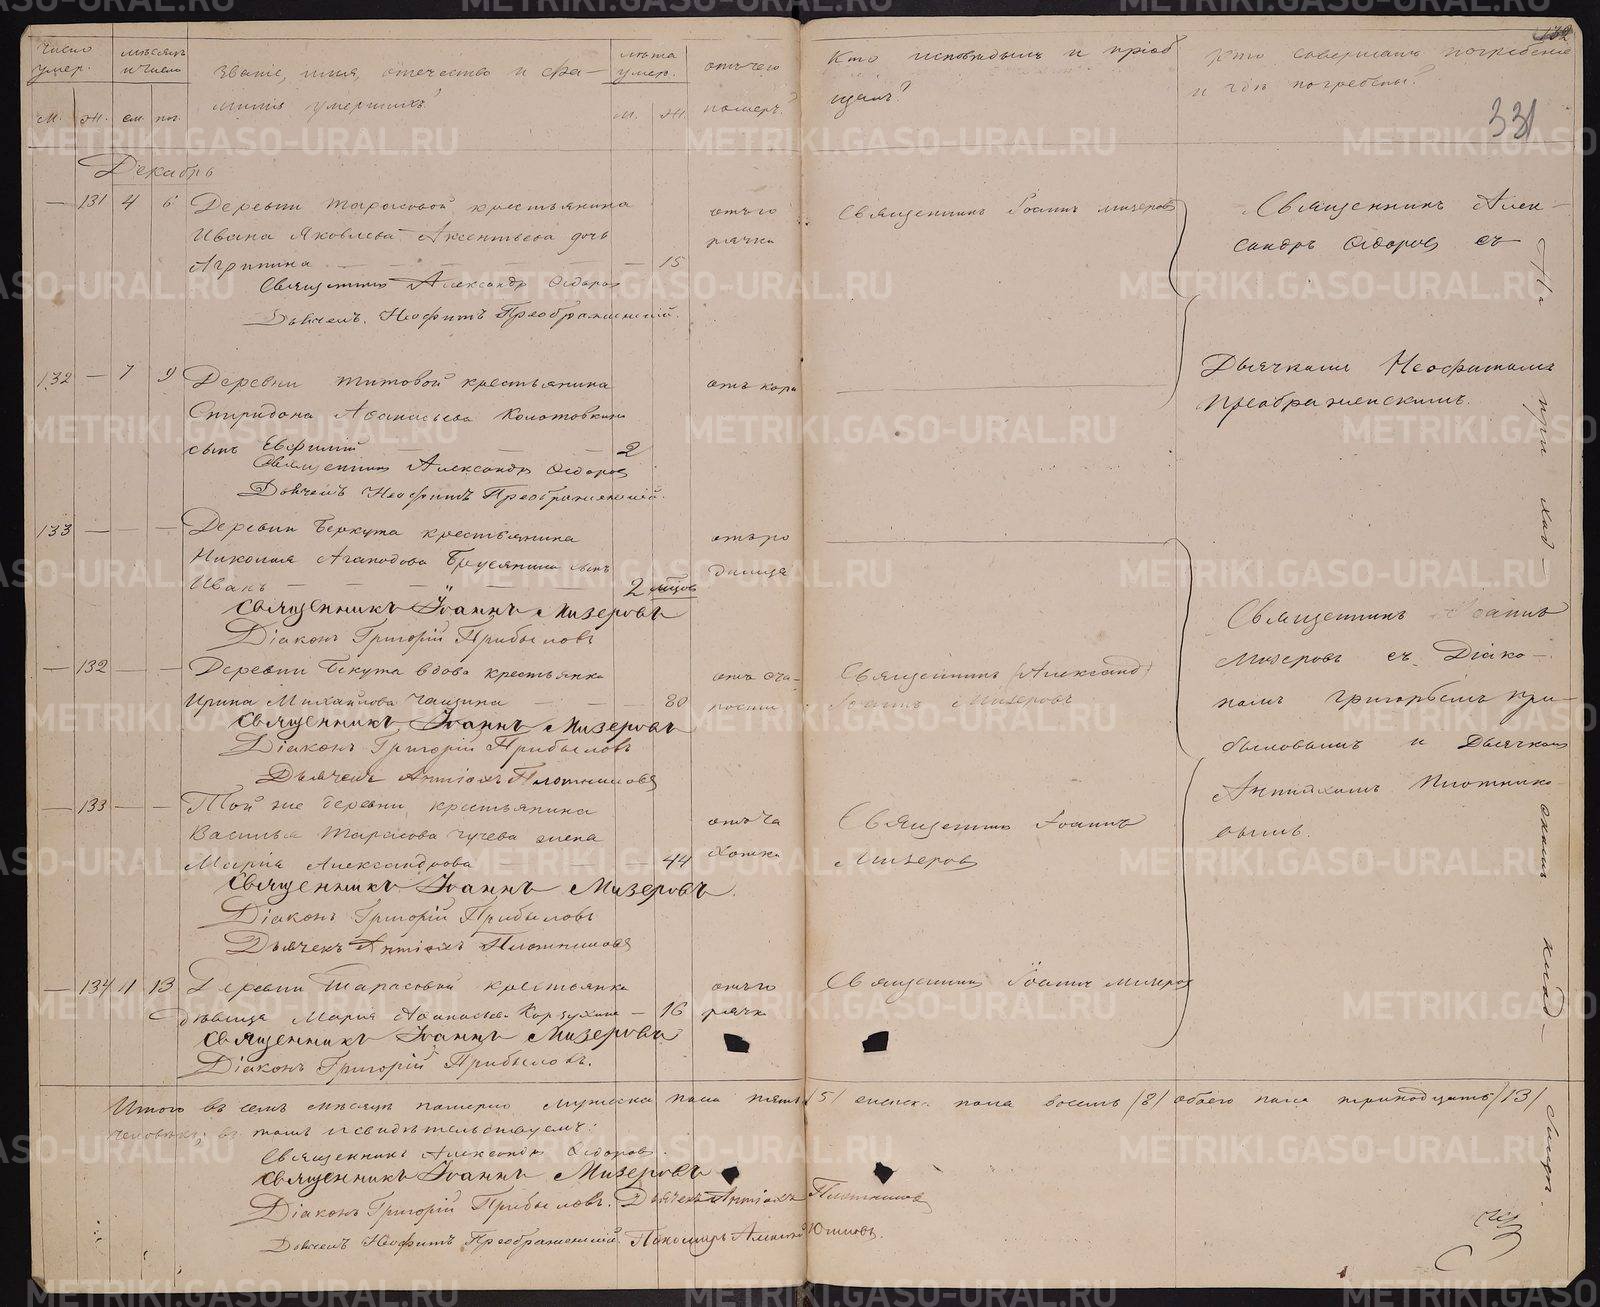 Число умер.
мѣсяцъ и число
Званіе, имя, отчество и фа-
милія умершихъ?
лѣта умер.
отъ чего
померъ?
Кто исповѣдывалъ и пріоб
щалъ?
Кто совершалъ погребеніе
и гдѣ погребены?
132
331
М. Ж. см. пог. М. Ж.
Декабрь
— 131 4 6 Деревни Тарасовой крестьянина
Ивана Яковлева Аксентьева дочь
Агрипина — 15
отъ го
рячки
Священникъ Іоаннъ Мизеровъ
Священникъ Алек-
сандръ Ѳедоровъ съ
Священникъ Александръ Ѳедоровъ
Дьячекъ Неофитъ Преображенскій.
132 — 7 9 Деревни Титовой крестьянина
Спиридона Аѳанасьева Колотовкина
сынъ Евфимій — 2
отъ кори
Дьячкомъ Неофитомъ
Преображенскимъ.
Священникъ Александръ Ѳедоровъ
Дьячекъ Неофитъ Преображенскій.
133 — — — Деревни Беркута крестьянина
Николая Агаподова Брусянина сынъ
Иванъ — 2 мѣсяцов
отъ ро
димца
Священникъ Іоаннъ Мизеровъ
Діаконъ Григорій Прибыловъ
Священникъ Іоаннъ
Мизеровъ съ Діако-
номъ Григорьемъ При-
быловымъ и Дьячкомъ
Антіохомъ Плотнико
вымъ.
— 132 — — Деревни Бекута вдова крестьянка
Ирина Михайлова Чащина — 80
отъ ста-
рости
Священникъ (Александ)
Іоаннъ Мизеровъ
Священникъ Іоаннъ Мизеровъ
Діаконъ Григорій Прибыловъ
Дьячекъ Антіохъ Плотниковъ
— 133 — — Той же деревни крестьянина
Василья Тарасова Чучева жена
Марія Александрова — 44
отъ ча
хотки
Священникъ Іоаннъ
Мизеровъ
Священникъ Іоаннъ Мизеровъ.
Діаконъ Григорій Прибыловъ
Дьячекъ Антіохъ Плотниковъ
— 134 11 13 Деревни Тарасовой крестьянка
дѣвица Марія Аѳанасьева Корзухина — 16
отъ го
рячки
Священникъ Іоаннъ Мизеровъ
Священникъ Іоаннъ Мизеровъ
Діаконъ Григорій Прибыловъ.
Итого въ семъ мѣсяцѣ померло мужеска пола пять /5/ женска пола восемь /8/ обоего пола тринадцать /13/
человѣкъ; въ томъ и свидѣтельствуемъ:
Священникъ Александръ Ѳедоровъ.
Священникъ Іоаннъ Мизеровъ
Діаконъ Григорій Прибыловъ. Дьячекъ Антіохъ Плотниковъ
Дьячекъ Неофитъ Преображенскій. Пономарь Алексей Юшковъ.
На при ход- скомъ клад- бищѣ
METRIKI.GASO-URAL.RU